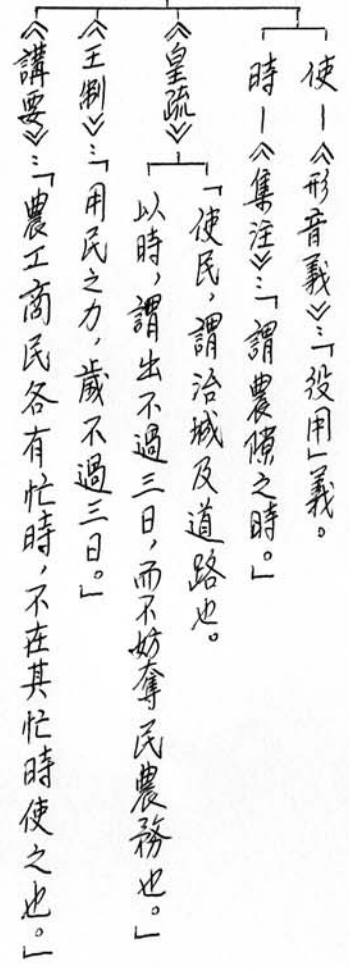 使—《形音義》：「役用」義。
時—《集注》：「謂農隙之時。」
《皇疏》
「使民，謂治城及道路也。
以時，謂出不過三日，而不妨奪民農務也。」
《王制》：「用民之力，歲不過三日。」
《講要》：「農工商民各有忙時，不在其忙時使之也。」